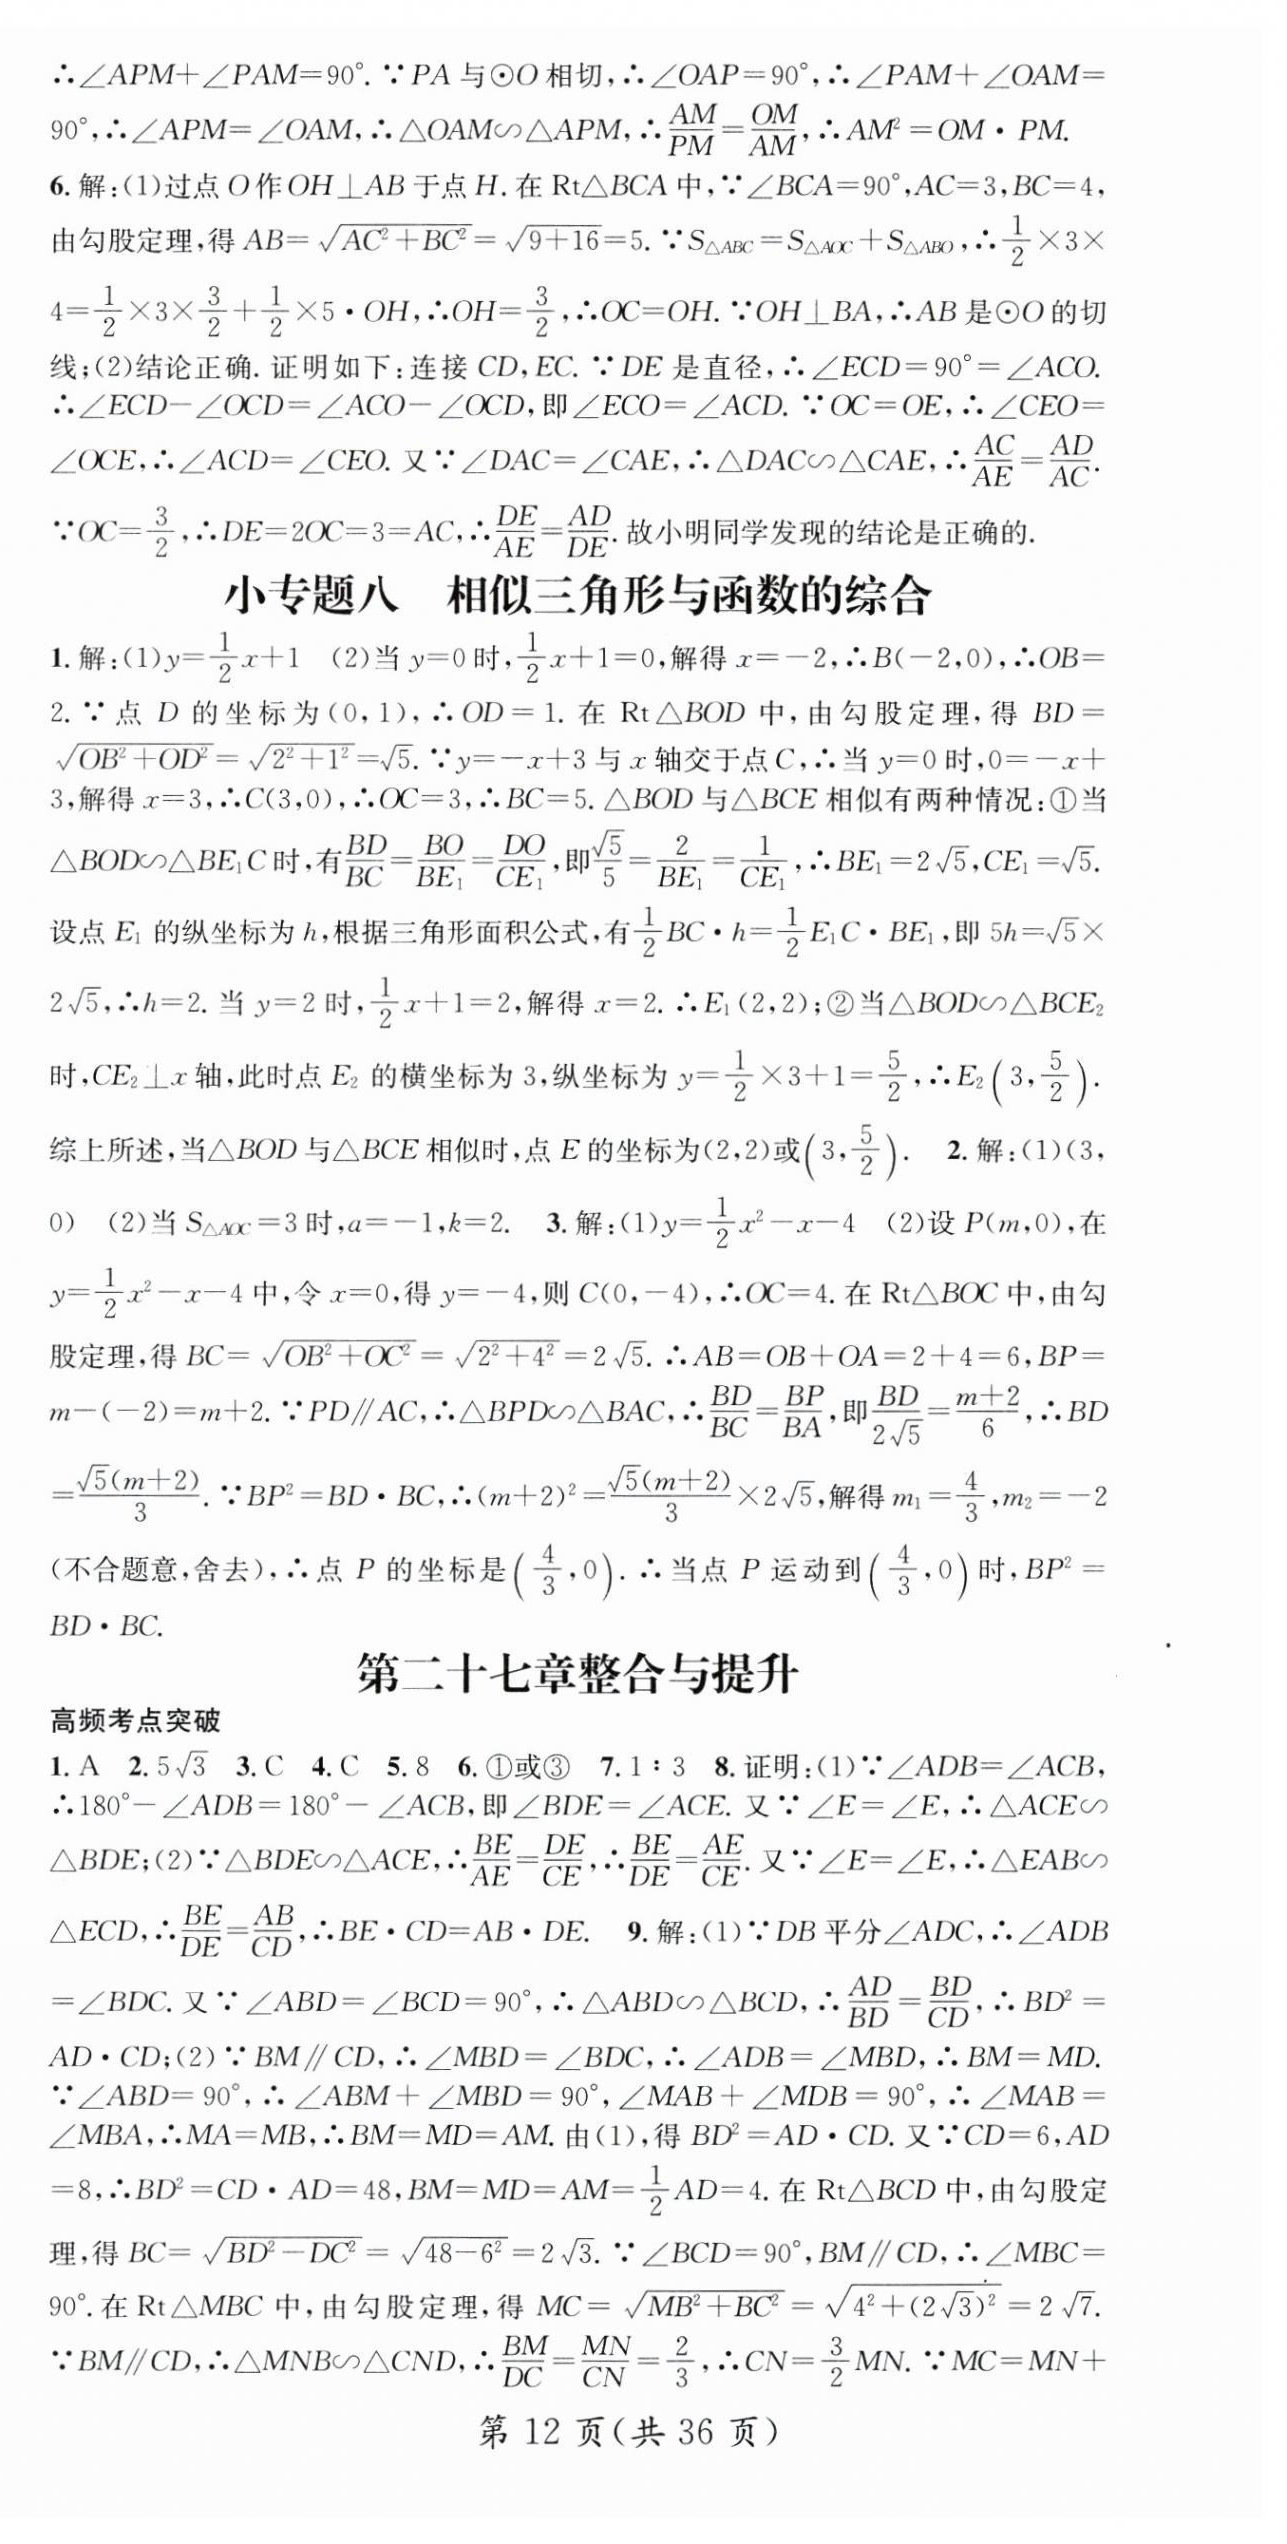 ∴∠APM+∠PAM=90°. ∵PA与⊙O相切,∴∠OAP=90°,∴∠PAM+∠OAM=
90°,∴∠APM=∠OAM,∴△OAM∽△APM,∴AM/PM=OM/AM,∴AM²=OM·PM.
6.解:(1)过点O作OH⊥AB于点H.在Rt△BCA中,∵∠BCA=90°,AC=3,BC=4,
由勾股定理,得AB=√(AC²+BC²)=√(9+16)=5. ∵S△ABC=S△AOC+S△ABO,∴1/2×3×
4=1/2×3×3/2+1/2×5·OH,∴OH=3/2,∴OC=OH. ∵OH⊥BA,∴AB是⊙O的切
线;(2)结论正确.证明如下:连接CD,EC. ∵DE是直径,∴∠ECD=90°=∠ACO.
∴∠ECD-∠OCD=∠ACO-∠OCD,即∠ECO=∠ACD. ∵OC=OE,∴∠CEO=
∠OCE,∴∠ACD=∠CEO.又∵∠DAC=∠CAE,∴△DAC∽△CAE,∴AC/AE=AD/AC.
∵OC=3/2,∴DE=2OC=3=AC,∴DE/AE=AD/DE.故小明同学发现的结论是正确的.
小专题八 相似三角形与函数的综合
1.解:(1)y=1/2x+1 (2)当y=0时,1/2x+1=0,解得x=-2,∴B(-2,0),∴OB=
2. ∵点D的坐标为(0,1),∴OD=1.在Rt△BOD中,由勾股定理,得BD=
√(OB²+OD²)=√(2²+1²)=√5. ∵y=-x+3与x轴交于点C,∴当y=0时,0=-x+
3,解得x=3,∴C(3,0),∴OC=3,∴BC=5.△BOD与△BCE相似有两种情况:①当
△BOD∽△BE₁C时,有BD/BC=BO/BE₁=DO/CE₁,即√5/5=2/BE₁=1/CE₁,∴BE₁=2√5,CE₁=√5.
设点E₁的纵坐标为h,根据三角形面积公式,有1/2BC·h=1/2E₁C·BE₁,即5h=√5×
2√5,∴h=2.当y=2时,1/2x+1=2,解得x=2.∴E₁(2,2);②当△BOD∽△BCE₂
时,CE₂⊥x轴,此时点E₂的横坐标为3,纵坐标为y=1/2×3+1=5/2,∴E₂(3,5/2).
综上所述,当△BOD与△BCE相似时,点E的坐标为(2,2)或(3,5/2). 2.解:(1)(3,
0) (2)当S△AOC=3时,a=-1,k=2. 3.解:(1)y=1/2x²-x-4 (2)设P(m,0),在
y=1/2x²-x-4中,令x=0,得y=-4,则C(0,-4),∴OC=4.在Rt△BOC中,由勾
股定理,得BC=√(OB²+OC²)=√(2²+4²)=2√5.∴AB=OB+OA=2+4=6,BP=
m-(-2)=m+2. ∵PD∥AC,∴△BPD∽△BAC,∴BD/BC=BP/BA,即BD/2√5=(m+2)/6,∴BD
=√5(m+2)/3. ∵BP²=BD·BC,∴(m+2)²=√5(m+2)/3×2√5,解得m₁=4/3,m₂=-2
(不合题意,舍去),∴点P的坐标是(4/3,0).∴当点P运动到(4/3,0)时,BP²=
BD·BC.
第二十七章整合与提升
高频考点突破
1.A 2.5√3 3.C 4.C 5.8 6.①或③ 7.1:3 8.证明:(1)∵∠ADB=∠ACB,
∴180°-∠ADB=180°-∠ACB,即∠BDE=∠ACE.又∵∠E=∠E,∴△ACE∽
△BDE;(2)∵△BDE∽△ACE,∴BE/AE=DE/CE,∴BE/DE=AE/CE.又∵∠E=∠E,∴△EAB∽
△ECD,∴BE/DE=AB/CD,∴BE·CD=AB·DE. 9.解:(1)∵DB平分∠ADC,∴∠ADB
=∠BDC.又∵∠ABD=∠BCD=90°,∴△ABD∽△BCD,∴AD/BD=BD/CD,∴BD²=
AD·CD;(2)∵BM∥CD,∴∠MBD=∠BDC,∴∠ADB=∠MBD,∴BM=MD.
∵∠ABD=90°,∴∠ABM+∠MBD=90°,∠MAB+∠MDB=90°,∴∠MAB=
∠MBA,∴MA=MB,∴BM=MD=AM.由(1),得BD²=AD·CD.又∵CD=6,AD
=8,∴BD²=CD·AD=48,BM=MD=AM=1/2AD=4.在Rt△BCD中,由勾股定
理,得BC=√(BD²-DC²)=√(48-6²)=2√3. ∵∠BCD=90°,BM∥CD,∴∠MBC=
90°.在Rt△MBC中,由勾股定理,得MC=√(MB²+BC²)=√(4²+(2√3)²)=2√7.
∵BM∥CD,∴△MNB∽△CND,∴BM/DC=MN/CN=2/3,∴CN=3/2MN. ∵MC=MN+
第12页(共36页)